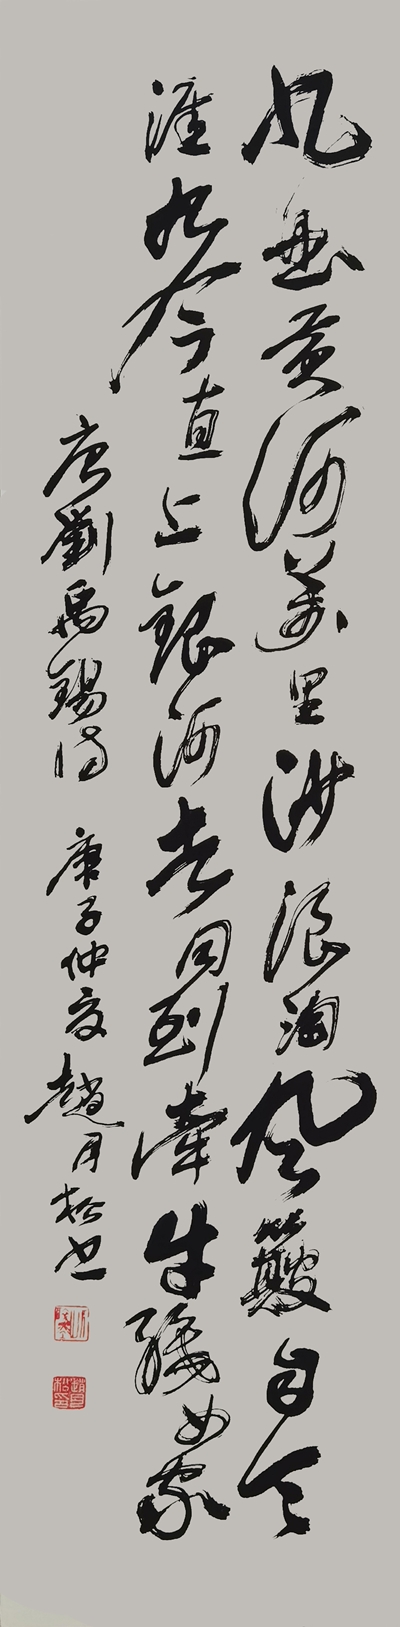 九曲黃河萬里沙浪淘風簸自天
涯如今直上銀河去同到牽牛織女家
唐劉禹錫詩 庚子仲夏趙月松書